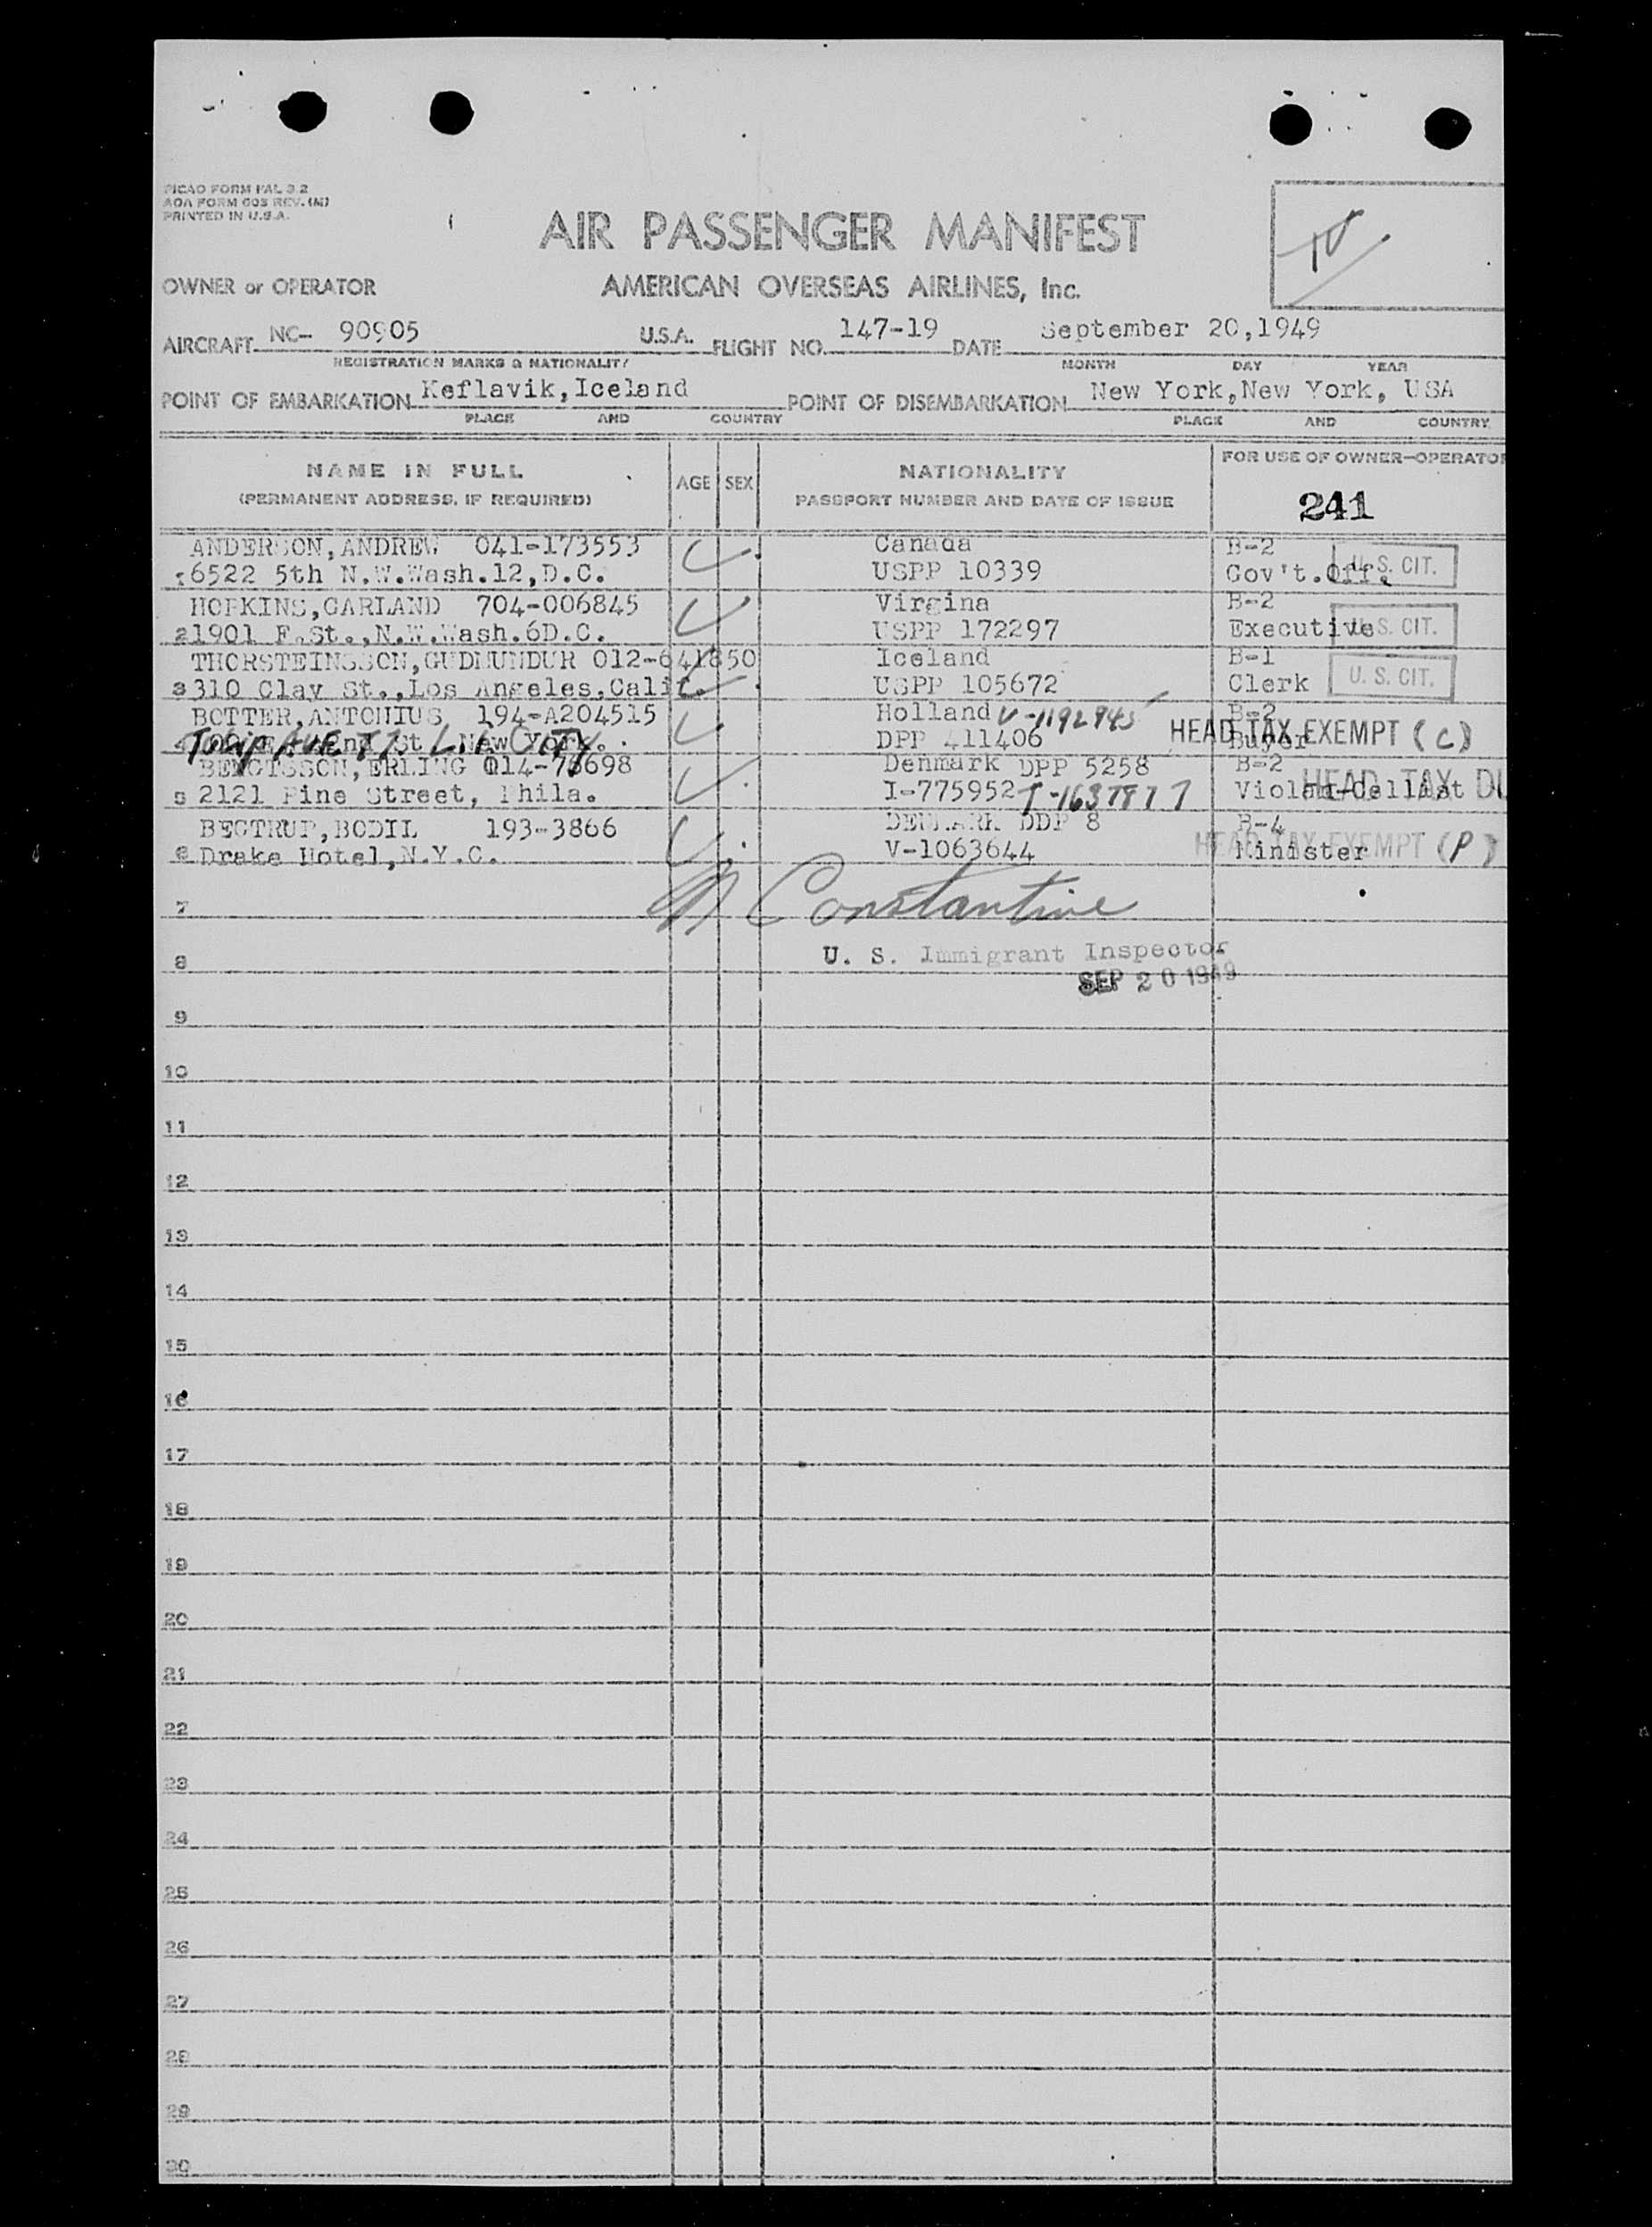 PICAO FORM PAL 3.2
AOA FORM 603 REV. (M)
PRINTED IN U.S.A.
AIR PASSENGER MANIFEST
OWNER or OPERATOR AMERICAN OVERSEAS AIRLINES, Inc.
AIRCRAFT NC- 90905 U.S.A. FLIGHT NO. 147-19 DATE September 20,1949
REGISTRATION MARKS & NATIONALITY MONTH DAY YEAR
POINT OF EMBARKATION Keflavik,Iceland POINT OF DISEMBARKATION New York,New York, USA
PLACE AND COUNTRY PLACE AND COUNTRY
NAME IN FULL
(PERMANENT ADDRESS, IF REQUIRED)
AGE SEX
NATIONALITY
PASSPORT NUMBER AND DATE OF ISSUE
FOR USE OF OWNER-OPERATOR
241
ANDERSON,ANDREW 041-173553 Canada B-2
6522 5th N.W.Wash.12,D.C. USPP 10339 Gov't.Off. U.S. CIT.
HOPKINS,GARLAND 704-006845 Virgina B-2
2 1901 F.St.,N.W.Wash.6D.C. USPP 172297 Executive U.S. CIT.
THORSTEINSSON,GUDMUNDUR 012-641850 Iceland B-1
3 310 Clay St.,Los Angeles,Calif. USPP 105672 Clerk U. S. CIT.
BOTTER,ANTONIUS 194-A204515 Holland V-1192945 B-2
New York. DPP 411406 Buyer HEAD TAX EXEMPT (C)
BENGTSSON,ERLING 014-78698 Denmark DPP 5258 B-2
5 2121 Pine Street, Phila. I-775952 T-1637877 Violin-Cellist HEAD TAX DU
BEGTRUP,BODIL 193-3866 DENMARK DDP 8 B-4
6 Drake Hotel,N.Y.C. V-1063644 Minister HEAD TAX EXEMPT (P)
Constantine
7
U. S. Immigrant Inspector
8
SEP 20 1949
9
10
11
12
13
14
15
16
17
18
19
20
21
22
23
24
25
26
27
28
29
30